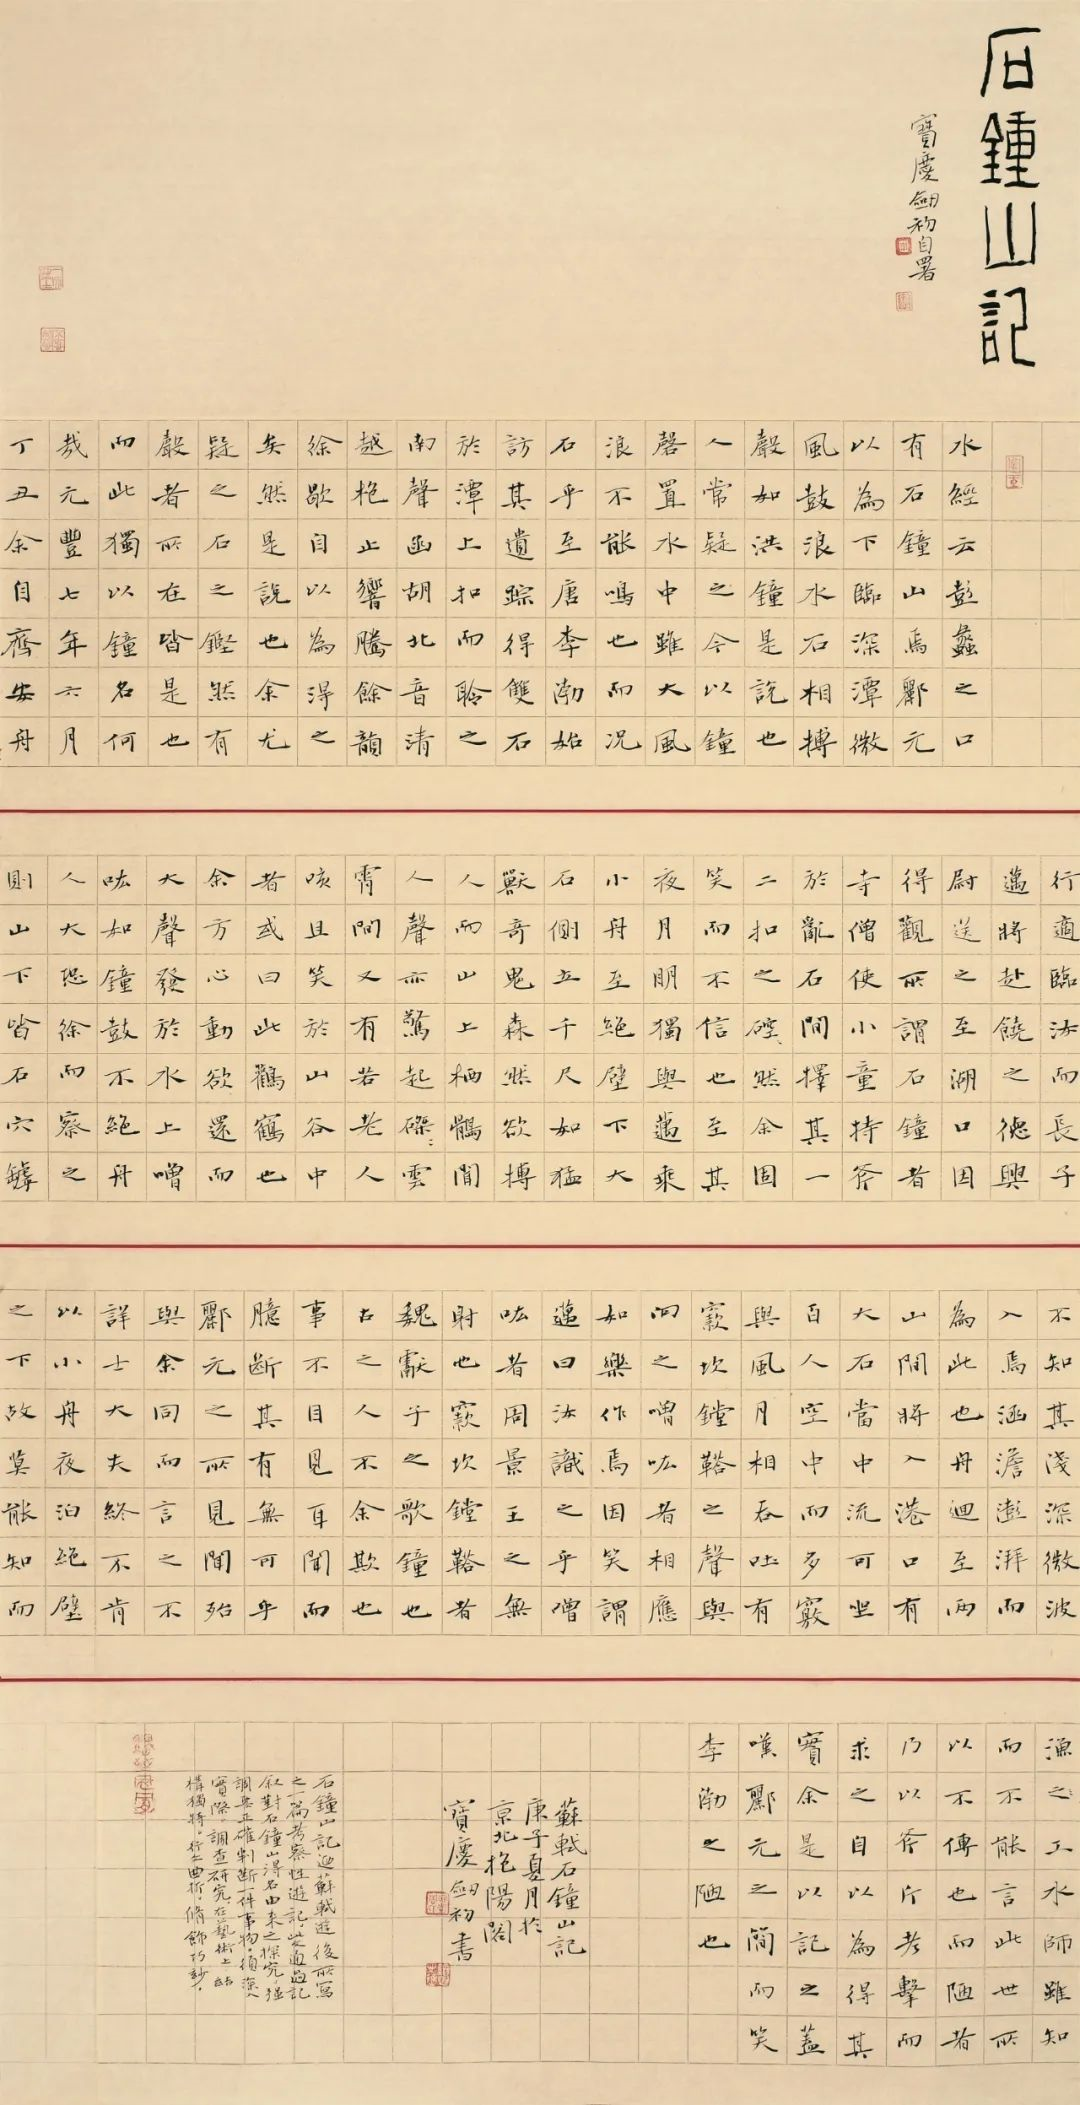 石鍾山記
寶慶劍初自署
水經云彭蠡之口
有石鐘山焉酈元
以為下臨深潭微
風鼓浪水石相搏
聲如洪鐘是說也
人常疑之今以鐘
磬置水中雖大風
浪不能鳴也而況
石乎至唐李渤始
訪其遺踪得雙石
於潭上扣而聆之
南聲函胡北音清
越枹止響騰餘韻
徐歇自以為得之
矣然是說也余尤
疑之石之鏗然有
聲者所在皆是也
而此獨以鐘名何
哉元豐七年六月
丁丑余自齊安舟
行適臨汝而長子
邁將赴饒之德興
尉送之至湖口因
得觀所謂石鐘者
寺僧使小童持斧
於亂石間擇其一
二扣之硿然余固
笑而不信也至其
夜月明獨與邁乘
小舟至絕壁下大
石側立千尺如猛
獸奇鬼森然欲搏
人而山上栖鶻聞
人聲亦驚起磔〻雲
霄間又有若老人
咳且笑於山谷中
者或曰此鸛鶴也
余方心動欲還而
大聲發於水上噌
吰如鐘鼓不絕舟
人大恐徐而察之
則山下皆石穴罅
不知其淺深微波
入焉涵澹澎湃而
為此也舟迴至兩
山間將入港口有
大石當中流可坐
百人空中而多竅
與風月相吞吐有
窾坎鏜鞳之聲與
向之噌吰者相應
如樂作焉因笑謂
邁曰汝識之乎噌
吰者周景王之無
射也窾坎鏜鞳者
魏獻子之歌鐘也
古之人不余欺也
事不目見耳聞而
臆斷其有無可乎
酈元之所見聞殆
與余同而言之不
詳士大夫終不肯
以小舟夜泊絕壁
之下故莫能知而
漁之工水師雖知
而不能言此世所
以不傳也而陋者
乃以斧斤考擊而
求之自以為得其
實余是以記之蓋
嘆酈元之簡而笑
李渤之陋也
蘇軾石鐘山記
庚子夏月於
京北抱陽閣
寶慶劍初書
石鐘山記迺蘇軾遊後所寫
之一篇考察性遊記此通過記
叙對石鐘山得名由來之探究強
調要正確判斷一件事物須深入
實際調查研究在藝術上結
構獨特行文曲折修飾巧妙